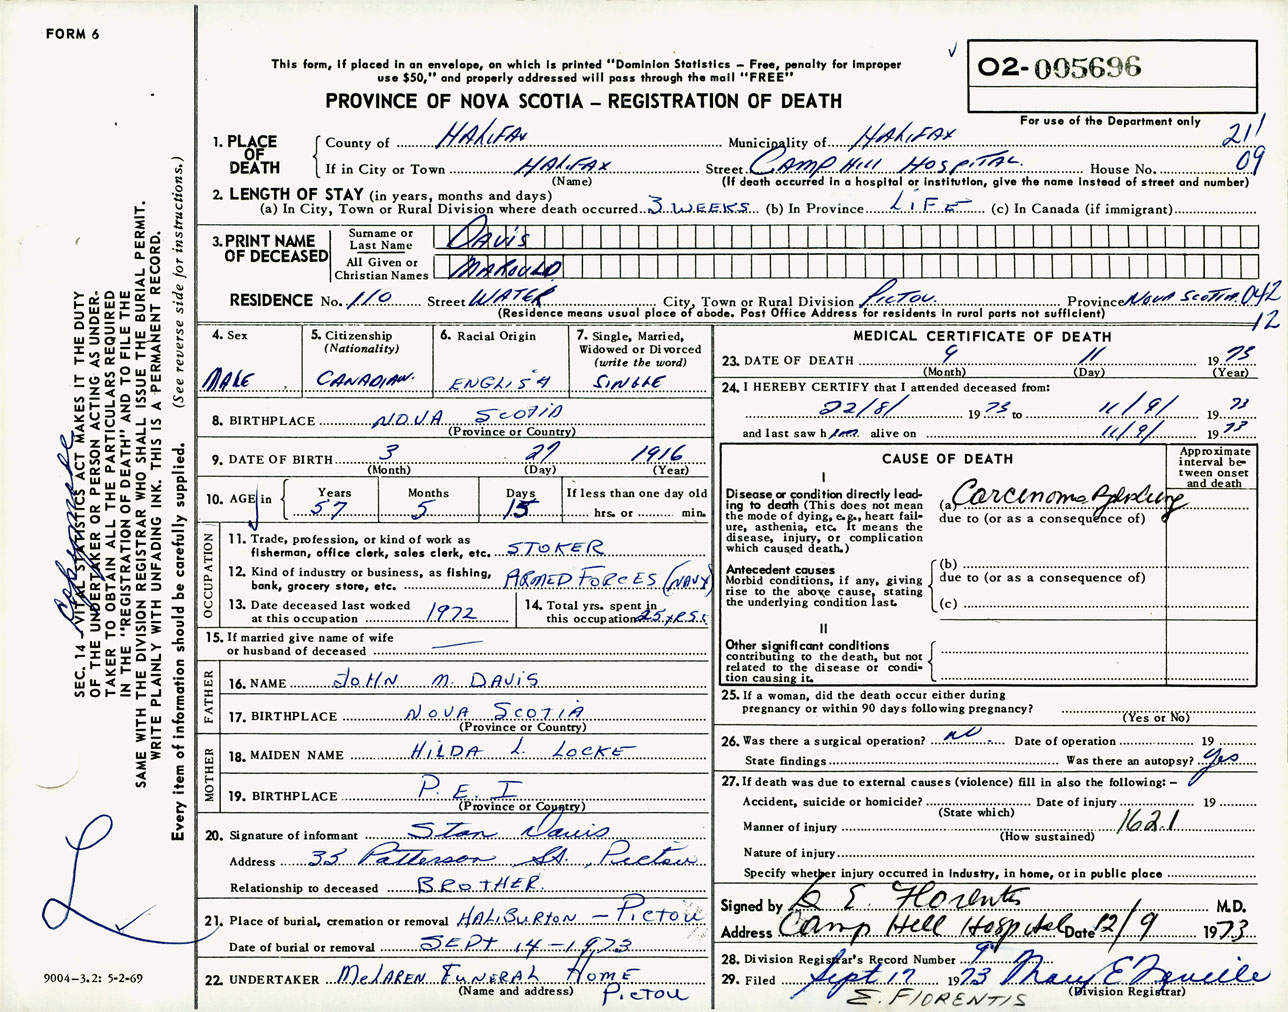 FORM 6
This form, if placed in an envelope, on which is printed "Dominion Statistics – Free, penalty for improper
use $50," and properly addressed will pass through the mail "FREE"
PROVINCE OF NOVA SCOTIA – REGISTRATION OF DEATH
O2-005696
For use of the Department only
211
09
1. PLACE OF DEATH
County of HALIFAX Municipality of HALIFAX
If in City or Town HALIFAX Street CAMP HILL HOSPITAL House No.
(Name) (If death occurred in a hospital or institution, give the name instead of street and number)
2. LENGTH OF STAY (in years, months and days)
(a) In City, Town or Rural Division where death occurred 3 WEEKS (b) In Province LIFE (c) In Canada (if immigrant)
3. PRINT NAME OF DECEASED
Surname or Last Name DAVIS
All Given or Christian Names MAROULD
RESIDENCE No. 110 Street WATER City, Town or Rural Division PICTOU Province NOVA SCOTIA 042
(Residence means usual place of abode. Post Office Address for residents in rural parts not sufficient) 12
4. Sex
MALE
5. Citizenship
(Nationality)
CANADIAN.
6. Racial Origin
ENGLISH
7. Single, Married,
Widowed or Divorced
(write the word)
SINGLE
8. BIRTHPLACE NOVA SCOTIA
(Province or Country)
9. DATE OF BIRTH 3 27 1916
(Month) (Day) (Year)
10. AGE in
Years 57
Months 5
Days 15
If less than one day old
hrs. or min.
OCCUPATION
11. Trade, profession, or kind of work as
fisherman, office clerk, sales clerk, etc. STOKER
12. Kind of industry or business, as fishing,
bank, grocery store, etc. ARMED FORCES (NAVY)
13. Date deceased last worked
at this occupation 1972
14. Total yrs. spent in
this occupation 25 YRS.
15. If married give name of wife
or husband of deceased —
FATHER
16. NAME JOHN M. DAVIS
17. BIRTHPLACE NOVA SCOTIA
(Province or Country)
MOTHER
18. MAIDEN NAME HILDA L. LOCKE
19. BIRTHPLACE P. E. I
(Province or Country)
20. Signature of informant Stan Davis
Address 33 Patterson St., Pictou
Relationship to deceased BROTHER.
21. Place of burial, cremation or removal HALIBURTON – PICTOU
Date of burial or removal SEPT 14 – 1973
22. UNDERTAKER MCLAREN FUNERAL HOME
(Name and address) PICTOU
MEDICAL CERTIFICATE OF DEATH
23. DATE OF DEATH 9 11 1973
(Month) (Day) (Year)
24. I HEREBY CERTIFY that I attended deceased from:
22/8/ 1973 to 11/9/ 1973
and last saw him alive on 11/9/ 1973
CAUSE OF DEATH
Approximate interval between onset and death
I
Disease or condition directly lead-
ing to death (This does not mean
the mode of dying, e.g., heart fail-
ure, asthenia, etc. It means the
disease, injury, or complication
which caused death.)
(a) Carcinoma Lung
due to (or as a consequence of)
Antecedent causes
Morbid conditions, if any, giving
rise to the above cause, stating
the underlying condition last.
(b)
due to (or as a consequence of)
(c)
II
Other significant conditions
contributing to the death, but not
related to the disease or condi-
tion causing it.
25. If a woman, did the death occur either during
pregnancy or within 90 days following pregnancy?
(Yes or No)
26. Was there a surgical operation? no Date of operation 19
State findings Was there an autopsy? yes
27. If death was due to external causes (violence) fill in also the following: –
Accident, suicide or homicide? Date of injury 19
(State which)
Manner of injury 1621
(How sustained)
Nature of injury
Specify whether injury occurred in industry, in home, or in public place
Signed by E. Florentis M.D.
Address Camp Hill Hospital Date 12/9 1973
28. Division Registrar's Record Number
29. Filed Sept 17 1973 Mary E
(Division Registrar)
E. FLORENTIS
SEC. 14 – VITAL STATISTICS ACT MAKES IT THE DUTY
OF THE UNDERTAKER OR PERSON ACTING AS UNDER-
TAKER TO OBTAIN ALL THE PARTICULARS REQUIRED
IN THE "REGISTRATION OF DEATH" AND TO FILE THE
SAME WITH THE DIVISION REGISTRAR WHO SHALL ISSUE THE BURIAL PERMIT.
WRITE PLAINLY WITH UNFADING INK. THIS IS A PERMANENT RECORD.
Every item of information should be carefully supplied. (See reverse side for instructions.)
9004–3.2: 5-2-69